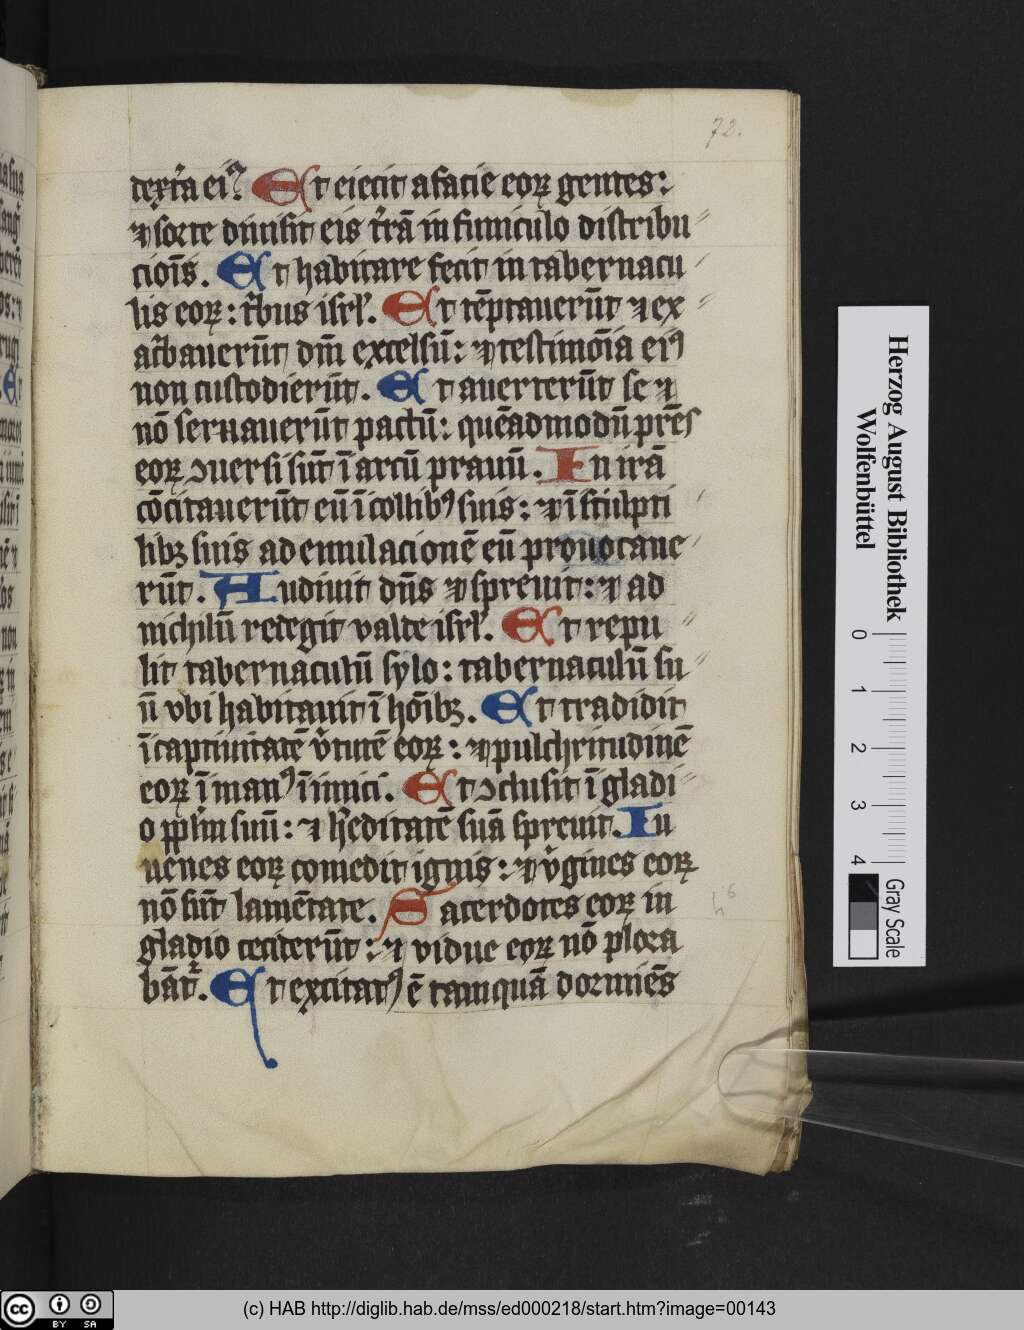 72.
dext̾a eiꝰ. Et eiecit a facie eoꝝ gentes:
⁊ sorte diuisit eis t̾rā in funiculo distribu
cioīs. Et habitare fecit in tabernacu
lis eoꝝ: t̾bus isrl̾. Et tēptauerūt ⁊ ex
ac̾bauerūt dm̄ excelsū: ⁊ testimōia eiꝰ
non custodierūt. Et auerterūt se ⁊
nō seruauerūt pactū: quēadmodū pr̄es
eoꝝ ꝯuersi sūt ī arcū prauū. In irā
cōcitauerūt eū ī collibꝰ suis: ⁊ ī sculpti
libꝫ suis ad emulacionē eū prouocaue
rūt. Audiuit dn̄s ⁊ spreuit: ⁊ ad
nichilū redegit valde isrl̾. Et repu
lit tabernaculū sylo: tabernaculū su
ū vbi habitauit ī hōībꝫ. Et tradidit
ī captiuitatē v̾tutē eoꝝ: ⁊ pulchritudinē
eoꝝ ī manꝰ īimici. Et ꝯclusit ī gladi
o pp̄lm suū: ⁊ h̾editatē suā spreuit. Iu
uenes eoꝝ comedit ignis: ⁊ v̾gines eoꝝ
nō sūt lamētate. Sacerdotes eoꝝ in
gladio ceciderūt: ⁊ vidue eoꝝ nō plora
bāt̾. Et excitatꝰ ē tamquā dormiēs
Herzog August Bibliothek
Wolfenbüttel
0 1 2 3 4
Gray Scale
cc BY SA
(c) HAB http://diglib.hab.de/mss/ed000218/start.htm?image=00143